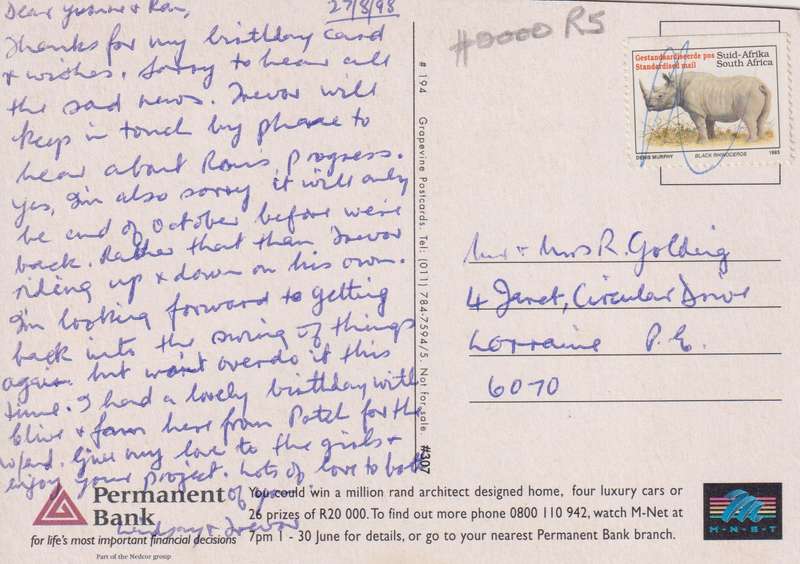 27/8/98
Dear Yvonne & Ron,
Thanks for my birthday card
& wishes. Sorry to hear all
the sad news. Trevor will
keep in touch by phone to
hear about Rons progress.
Yes, I'm also sorry it will only
be end of October before we're
back. Rather that than Trevor
riding up & down on his own.
I'm looking forward to getting
back into the swing of things
again but won't overdo it this
time. I had a lovely birthday with
Clive & fam here from Potch for the
w/end. Give my love to the girls &
enjoy your project. Lots of love to both
of you
Lindsay & Trevor
# 194 Grapevine Postcards. Tel: (011) 784-7594/5. Not for sale #307
#0000 R5
Gestandaardiseerde pos
Standardised mail
Suid-Afrika
South Africa
DENIS MURPHY BLACK RHINOCEROS 1993
Mr & Mrs R. Golding
4 Janet, Circular Drive
Lorraine P.E.
6070
Permanent
Bank
for life's most important financial decisions
Part of the Nedcor group
You could win a million rand architect designed home, four luxury cars or
26 prizes of R20 000. To find out more phone 0800 110 942, watch M-Net at
7pm 1 - 30 June for details, or go to your nearest Permanent Bank branch.
M-NET